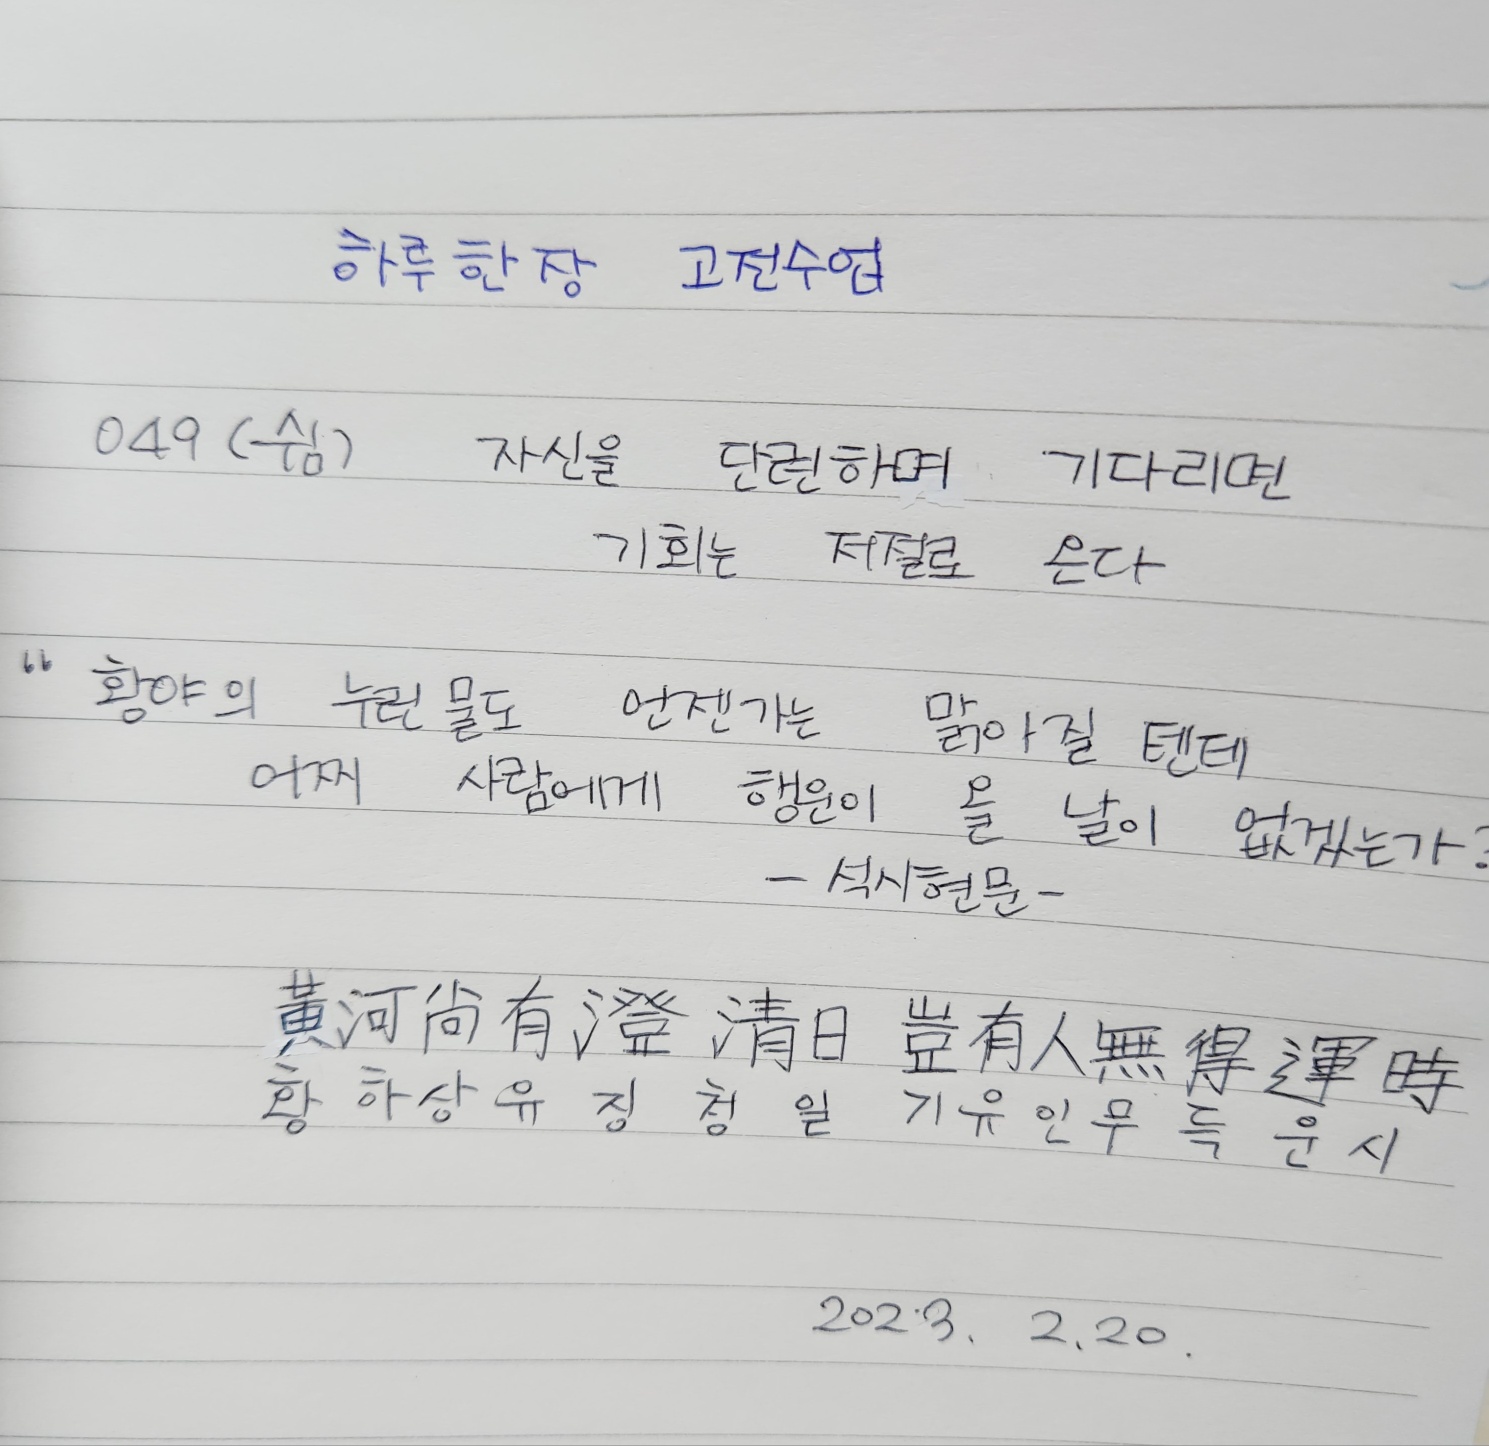 하루한장 고전수업
049 (쉼) 자신을 단련하며 기다리면
기회는 저절로 온다
“ 황야의 누런물도 언젠가는 맑아질 텐데
어찌 사람에게 행운이 올 날이 없겠는가?
- 석시현문 -
黃河尙有澄淸日 豈有人無得運時
황하상유징청일 기유인무득운시
2023. 2.20.